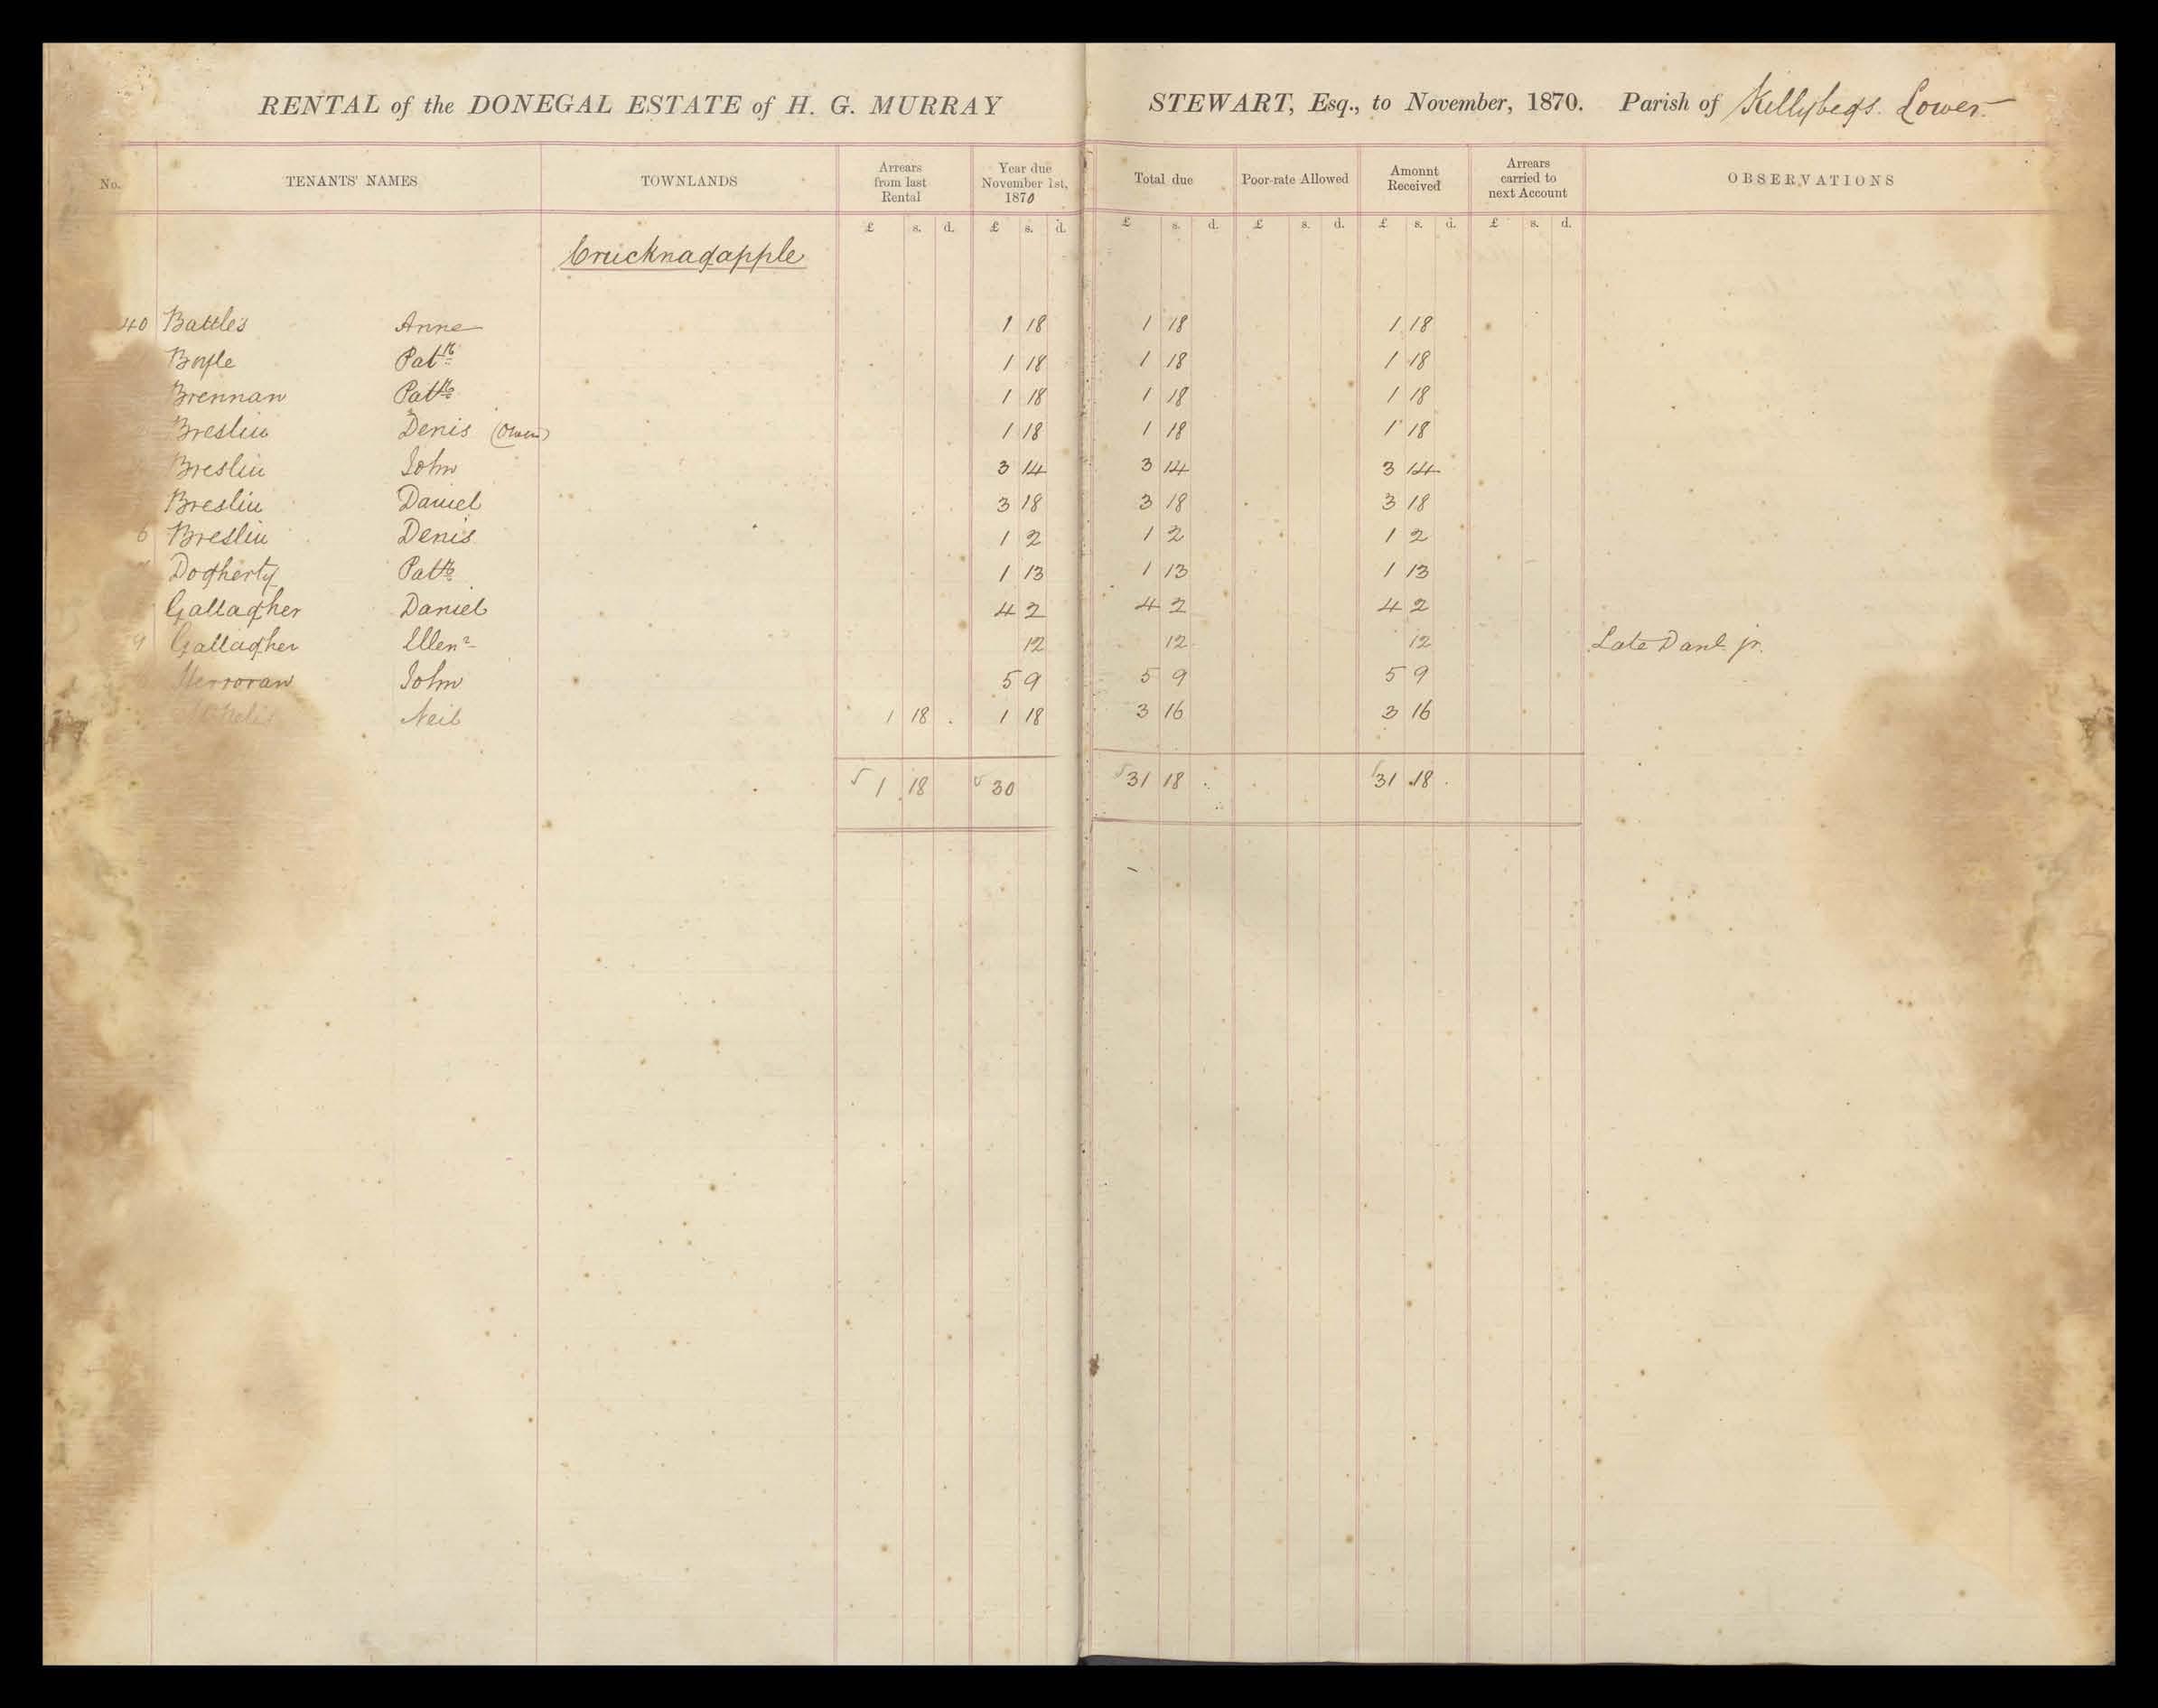 RENTAL of the DONEGAL ESTATE of H. G. MURRAY STEWART, Esq., to November, 1870. Parish of Killybegs. Lower
No. TENANTS' NAMES TOWNLANDS Arrears from last Rental Year due November 1st, 1870 Total due Poor-rate Allowed Amonnt Received Arrears carried to next Account OBSERVATIONS
£ s. d. £ s. d. £ s. d. £ s. d. £ s. d. £ s. d.
Crucknagapple
40 Battles Anne 1 18 1 18 1 18
Boyle Patk 1 18 1 18 1 18
Brennan Patk 1 18 1 18 1 18
Breslin Denis (Owen) 1 18 1 18 1 18
Breslin John 3 14 3 14 3 14
Breslin Daniel 3 18 3 18 3 18
6 Breslin Denis 1 2 1 2 1 2
Dogherty Patk 1 13 1 13 1 13
Gallagher Daniel 4 2 4 2 4 2
9 Gallagher Ellen 12 12 12 Late Danl. jr.
John 5 9 5 9 5 9
Neil 1 18 . 1 18 3 16 3 16
1 18 30 31 18 . 31 18 .